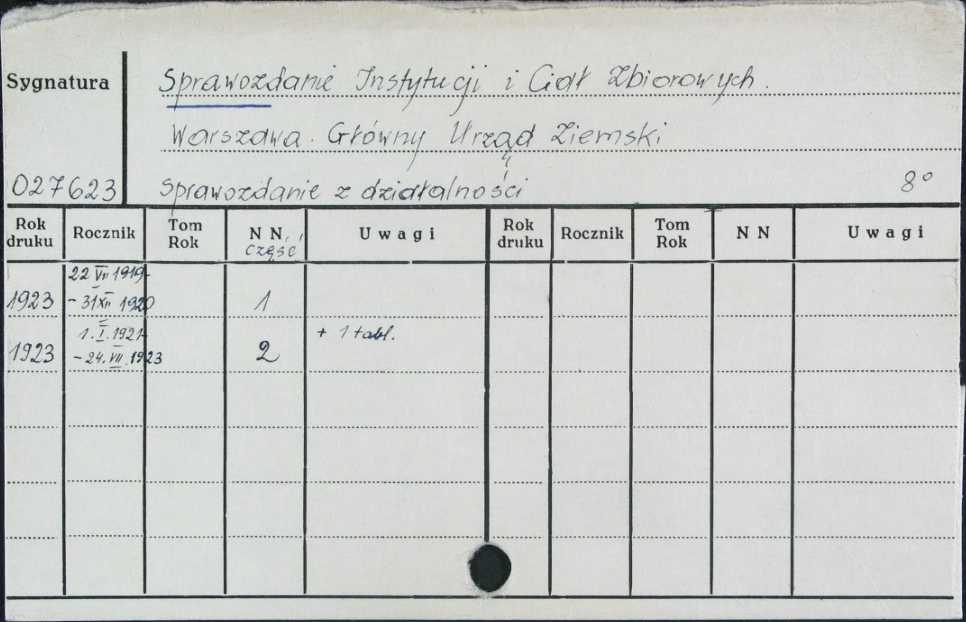 Sygnatura
Sprawozdanie Instytucji i Ciał Zbiorowych.
Warszawa. Główny Urząd Ziemski
027623
Sprawozdanie z działalności
8°
Rok druku Rocznik Tom Rok N N. Część Uwagi Rok druku Rocznik Tom Rok N N Uwagi
22 VII 1919-
1923 - 31 XII 1920 1
1. I. 1921- + 1 tabl.
1923 - 24. VII. 1923 2